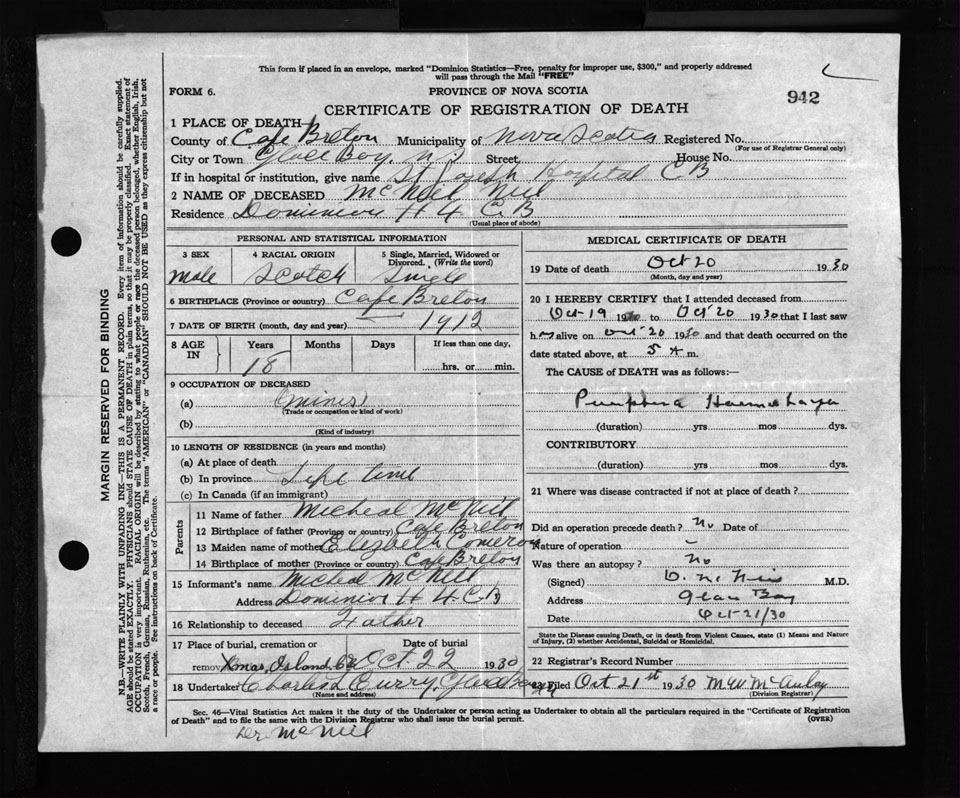 This form if placed in an envelope, marked "Dominion Statistics—Free, penalty for improper use, $300," and properly addressed
will pass through the Mail "FREE"
FORM 6.
PROVINCE OF NOVA SCOTIA
942
CERTIFICATE OF REGISTRATION OF DEATH
1 PLACE OF DEATH
County of Cape Breton Municipality of Nova Scotia Registered No.
(For use of Registrar General only)
City or Town Glace Bay N S Street House No.
If in hospital or institution, give name St Joseph Hospital C B
2 NAME OF DECEASED McNeil Neil
Residence Dominion # 4 C B
(Usual place of abode)
PERSONAL AND STATISTICAL INFORMATION
3 SEX 4 RACIAL ORIGIN 5 Single, Married, Widowed or Divorced. (Write the word)
Male Scotch Single
6 BIRTHPLACE (Province or country) Cape Breton
7 DATE OF BIRTH (month, day and year) 1912
8 AGE IN Years Months Days If less than one day,
18 hrs. or min.
9 OCCUPATION OF DECEASED
(a) (Miner)
(Trade or occupation or kind of work)
(b)
(Kind of industry)
10 LENGTH OF RESIDENCE (in years and months)
(a) At place of death
(b) In province Life time
(c) In Canada (if an immigrant)
Parents
11 Name of father Micheal McNeil
12 Birthplace of father (Province or country) Cape Breton
13 Maiden name of mother Elizbeth Comeron
14 Birthplace of mother (Province or country) Cape Breton
15 Informant's name Micheal McNeil
Address Dominion # 4. C. B
16 Relationship to deceased Father
17 Place of burial, cremation or Date of burial
removal Xmas, Island, CB Oct. 22 1930
18 Undertaker Charles Curry, Glace Bay
(Name and address)
MEDICAL CERTIFICATE OF DEATH
19 Date of death Oct 20 1930
(Month, day and year)
20 I HEREBY CERTIFY that I attended deceased from
Oct-19 1930 to Oct 20 1930 that I last saw
h m alive on Oct 20 1930 and that death occurred on the
date stated above, at 5 A m.
The CAUSE of DEATH was as follows:—
Purphura
(duration) yrs mos dys.
CONTRIBUTORY
(duration) yrs mos dys.
21 Where was disease contracted if not at place of death?
Did an operation precede death? No Date of
Nature of operation –
Was there an autopsy? No
(Signed) M.D.
Address Glace Bay
Date Oct-21/30
State the Disease causing Death, or in death from Violent Causes, state (1) Means and Nature
of Injury, (2) whether Accidental, Suicidal or Homicidal.
22 Registrar's Record Number
23 Filed Oct 21st 1930 M W McAulay
(Division Registrar)
Sec. 46—Vital Statistics Act makes it the duty of the Undertaker or person acting as Undertaker to obtain all the particulars required in the "Certificate of Registration
of Death" and to file the same with the Division Registrar who shall issue the burial permit.
(OVER)
McNeil
MARGIN RESERVED FOR BINDING
N.B.—WRITE PLAINLY WITH UNFADING INK—THIS IS A PERMANENT RECORD. Every item of information should be carefully supplied.
AGE should be stated EXACTLY. PHYSICIANS should STATE CAUSE OF DEATH in plain terms, so that it may be properly classified. Exact statement of
OCCUPATION is very important. RACIAL ORIGIN will be described by stating to what people or race the deceased person belonged, whether English, Irish,
Scotch, French, German, Russian, Ruthenian, etc. The terms "AMERICAN" or "CANADIAN" SHOULD NOT BE USED as they express citizenship but not
a race or people. See instructions on back of Certificate.